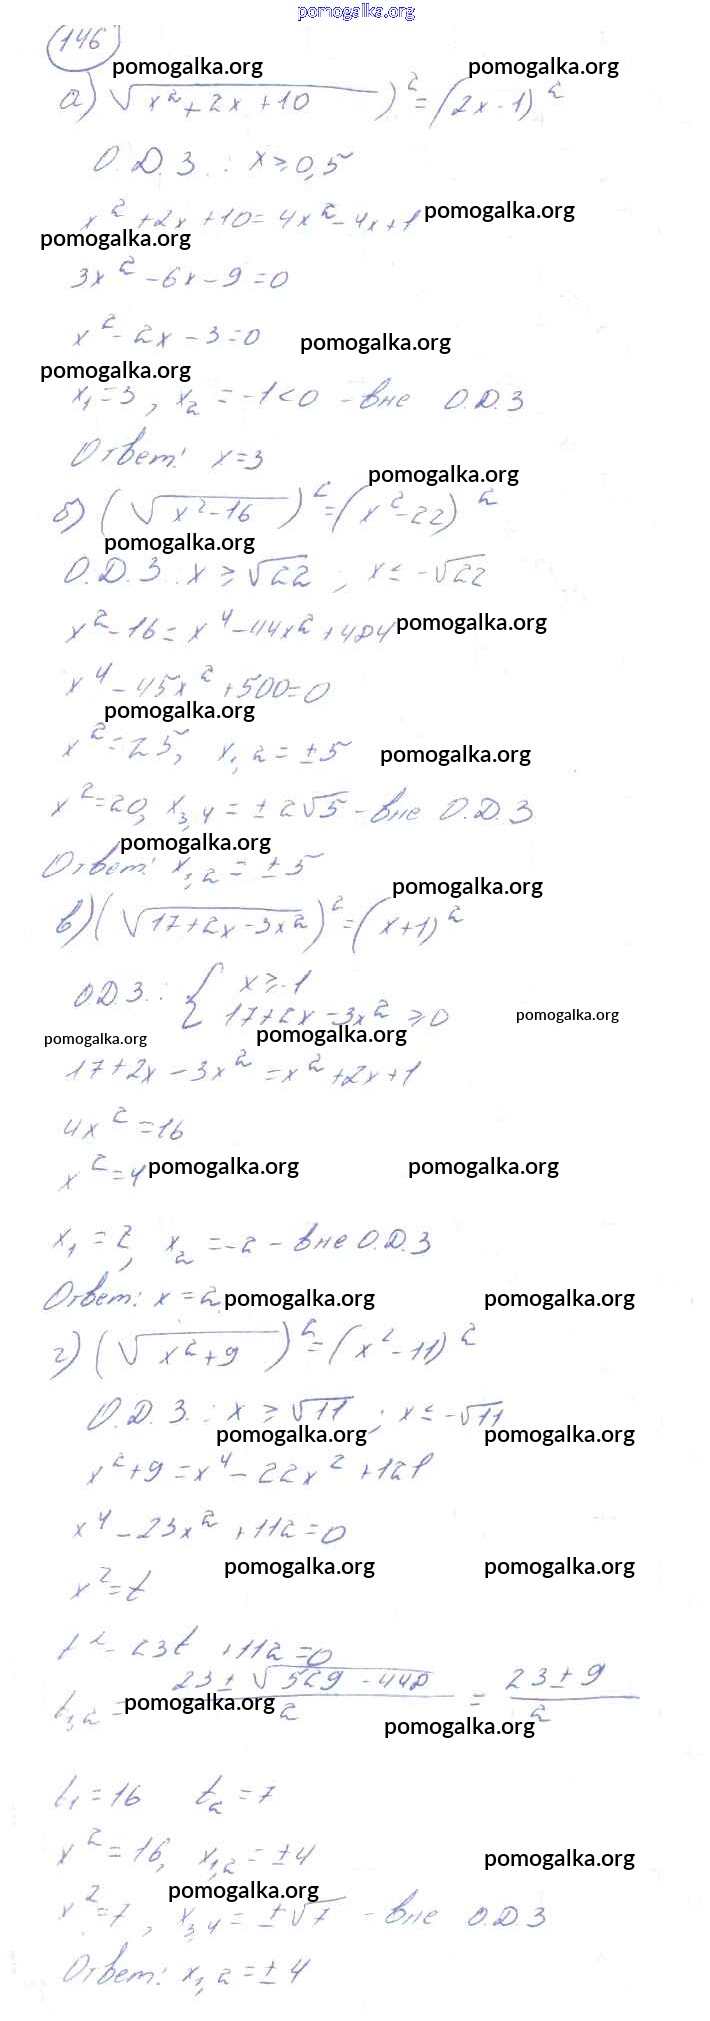 pomogalka.org
146
pomogalka.org pomogalka.org
а) √(x² + 2x + 10) )² = (2x - 1)²
О.Д.З.: x ≥ 0,5
x² + 2x + 10 = 4x² - 4x + 1 pomogalka.org
pomogalka.org
3x² - 6x - 9 = 0
x² - 2x - 3 = 0 pomogalka.org
pomogalka.org
x₁ = 3, x₂ = -1 < 0 - вне О.Д.З
Ответ: x = 3
pomogalka.org
б) (√(x² - 16))² = (x² - 22)²
pomogalka.org
О.Д.З: x ≥ √22; x ≤ -√22
x² - 16 = x⁴ - 44x² + 484 pomogalka.org
x⁴ - 45x² + 500 = 0
pomogalka.org
x² = 25, x₁,₂ = ±5 pomogalka.org
x² = 20, x₃,₄ = ±2√5 - вне О.Д.З
pomogalka.org
Ответ: x₁,₂ = ±5
pomogalka.org
в) (√(17 + 2x - 3x²))² = (x + 1)²
О.Д.З.: { x ≥ -1
17 + 2x - 3x² ≥ 0 pomogalka.org
pomogalka.org pomogalka.org
17 + 2x - 3x² = x² + 2x + 1
4x² = 16
x² = 4 pomogalka.org pomogalka.org
x₁ = 2, x₂ = -2 - вне О.Д.З
Ответ: x = 2 pomogalka.org pomogalka.org
г) (√(x² + 9))² = (x² - 11)²
О.Д.З.: x ≥ √11; x ≤ -√11
pomogalka.org pomogalka.org
x² + 9 = x⁴ - 22x² + 121
x⁴ - 23x² + 112 = 0
pomogalka.org pomogalka.org
x² = t
t² - 23t + 112 = 0
t₁,₂ = (23 ± √(529 - 448))/2 = (23 ± 9)/2
pomogalka.org
pomogalka.org
t₁ = 16 t₂ = 7
x² = 16, x₁,₂ = ±4 pomogalka.org
pomogalka.org
x² = 7, x₃,₄ = ±√7 - вне О.Д.З
Ответ: x₁,₂ = ±4